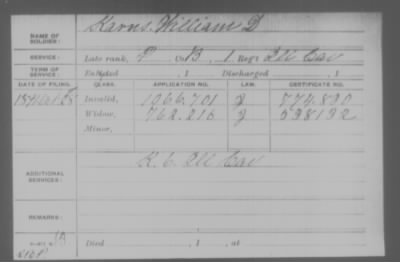 NAME OF SOLDIER: Karns, William D
SERVICE: Late rank, P Co. B, 1 Reg't Ill Cav
TERM OF SERVICE: Enlisted , 1 Discharged , 1
DATE OF FILING. CLASS. APPLICATION NO. LAW. CERTIFICATE NO.
Invalid, 1066.701 J 774.890
Widow, 762.216 J 538192
Minor,
K. 6. Ill Cav
ADDITIONAL SERVICES:
REMARKS:
Died , 1 , at